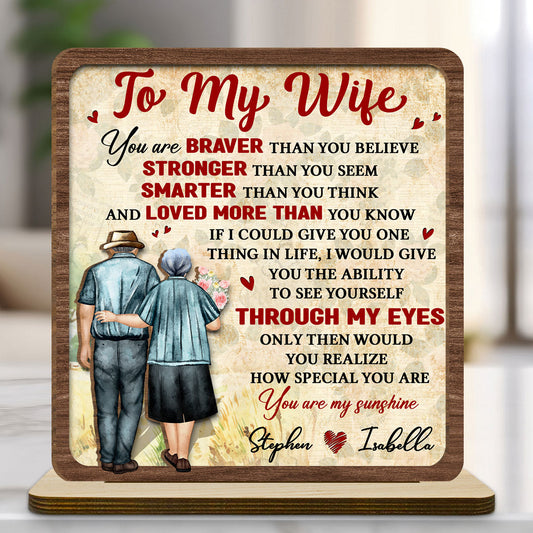 To My Wife
You are BRAVER THAN YOU BELIEVE
STRONGER THAN YOU SEEM
SMARTER THAN YOU THINK
AND LOVED MORE THAN YOU KNOW
IF I COULD GIVE YOU ONE
THING IN LIFE, I WOULD GIVE
YOU THE ABILITY
TO SEE YOURSELF
THROUGH MY EYES
ONLY THEN WOULD
YOU REALIZE
HOW SPECIAL YOU ARE
You are my sunshine
Stephen Isabella